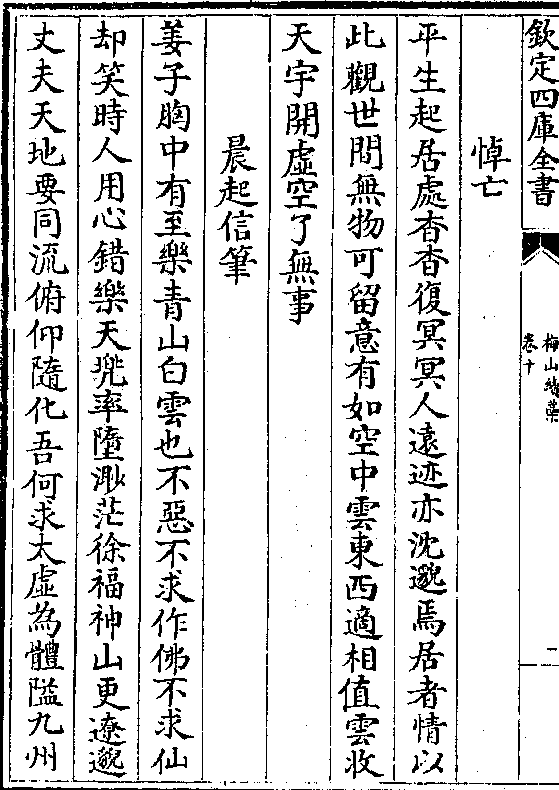 欽定四庫全書
梅山續藁
卷十
二
悼亡
平生起居處杳杳復冥冥人遠迹亦沈邈焉居者情以
此觀世間無物可留意有如空中雲東西適相值雲收
天宇開虛空了無事
晨起信筆
姜子胸中有至樂青山白雲也不惡不求作佛不求仙
却笑時人用心錯樂天兠率墮渺茫徐福神山更遼邈
丈夫天地要同流俯仰隨化吾何求太虛為體隘九州